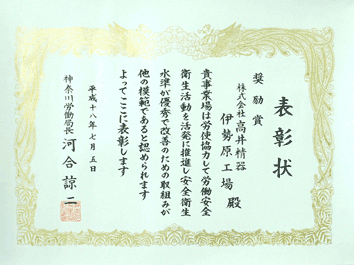 表彰状
奨励賞
株式会社高井精器
伊勢原工場 殿
貴事業場は労使協力して労働安全
衛生活動を活発に推進し安全衛生
水準が優秀で改善のための取組みが
他の模範であると認められます
よってここに表彰します
平成十八年七月五日
神奈川労働局長 河合諒二